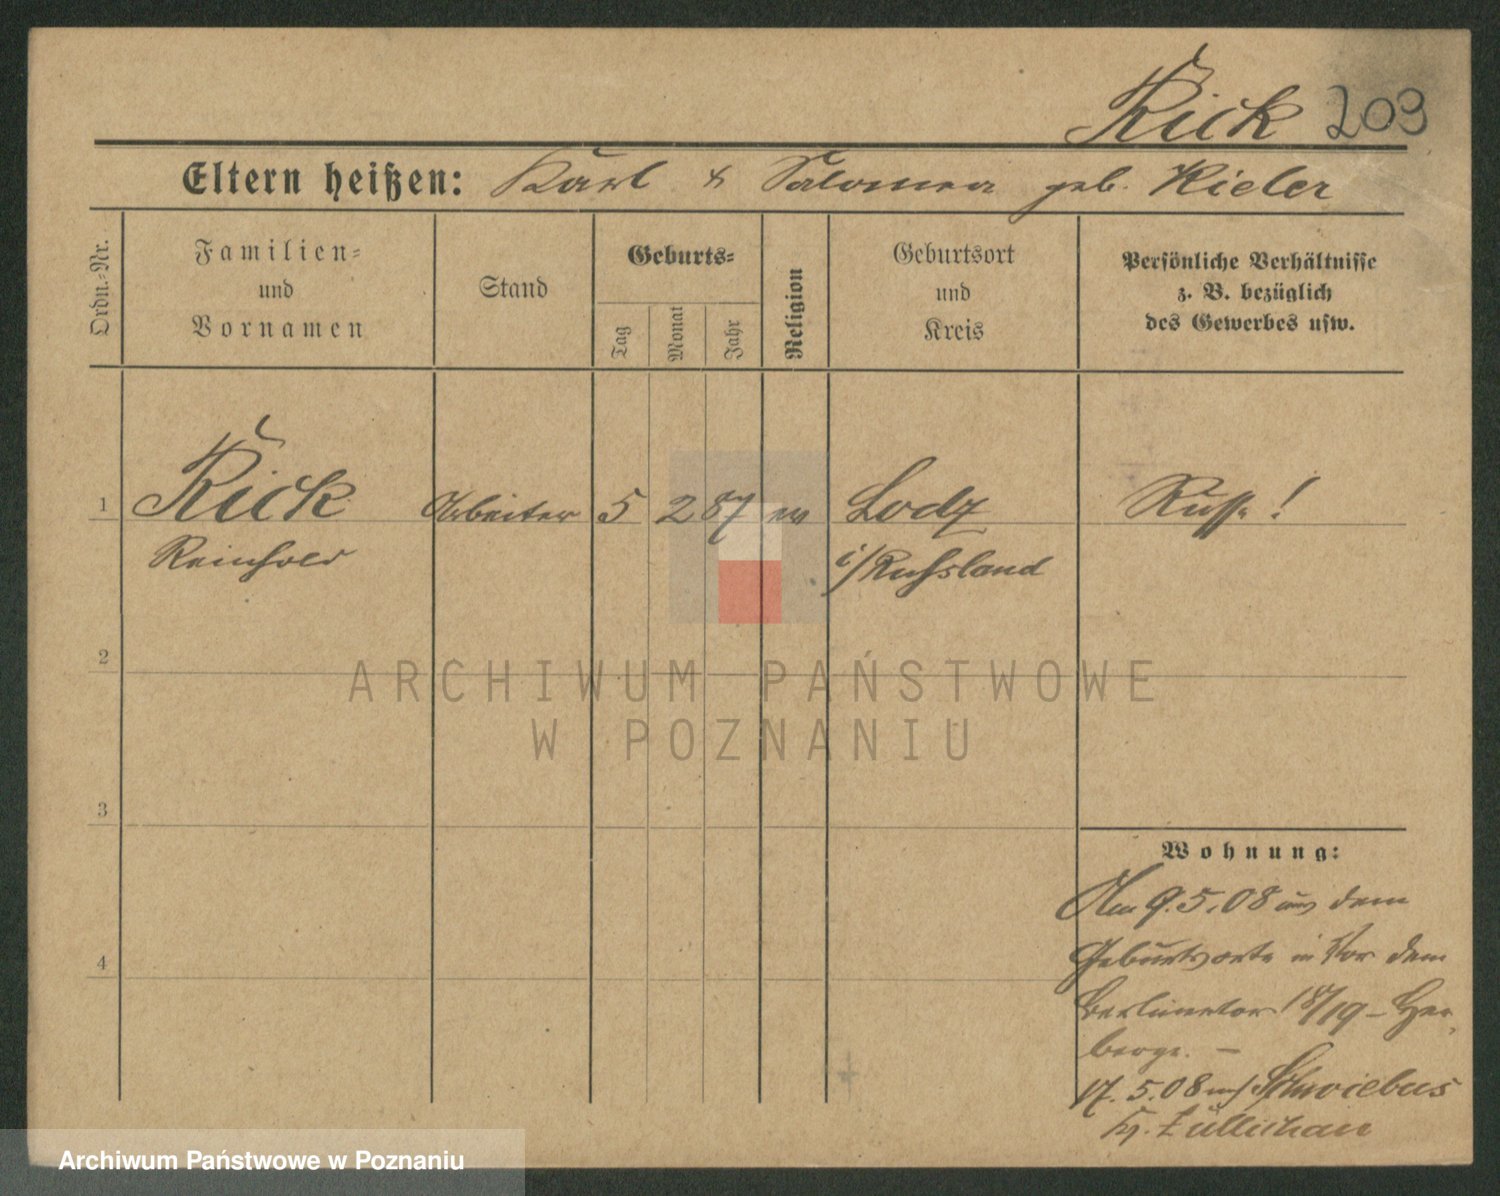 Rick 203
Eltern heißen: Karl & Salomea geb. Kieler
Ordn.-Nr.
Familien-
und
Vornamen
Stand
Geburts-
Tag
Monat
Jahr
Religion
Geburtsort
und
Kreis
Persönliche Verhältnisse
z. B. bezüglich
des Gewerbes usw.
1 Rick Arbeiter 5 2 87 ev Lodz Russe!
Reinhold i/Russland
2
3
4
ARCHIWUM PAŃSTWOWE
W POZNANIU
Wohnung:
Am 9.5.08 aus dem
Geburtsorte in Vor dem
Berlinertor 18/19 – Her-
berge. –
17.5.08 n/ Schwiebus
Kr. Züllichau
Archiwum Państwowe w Poznaniu